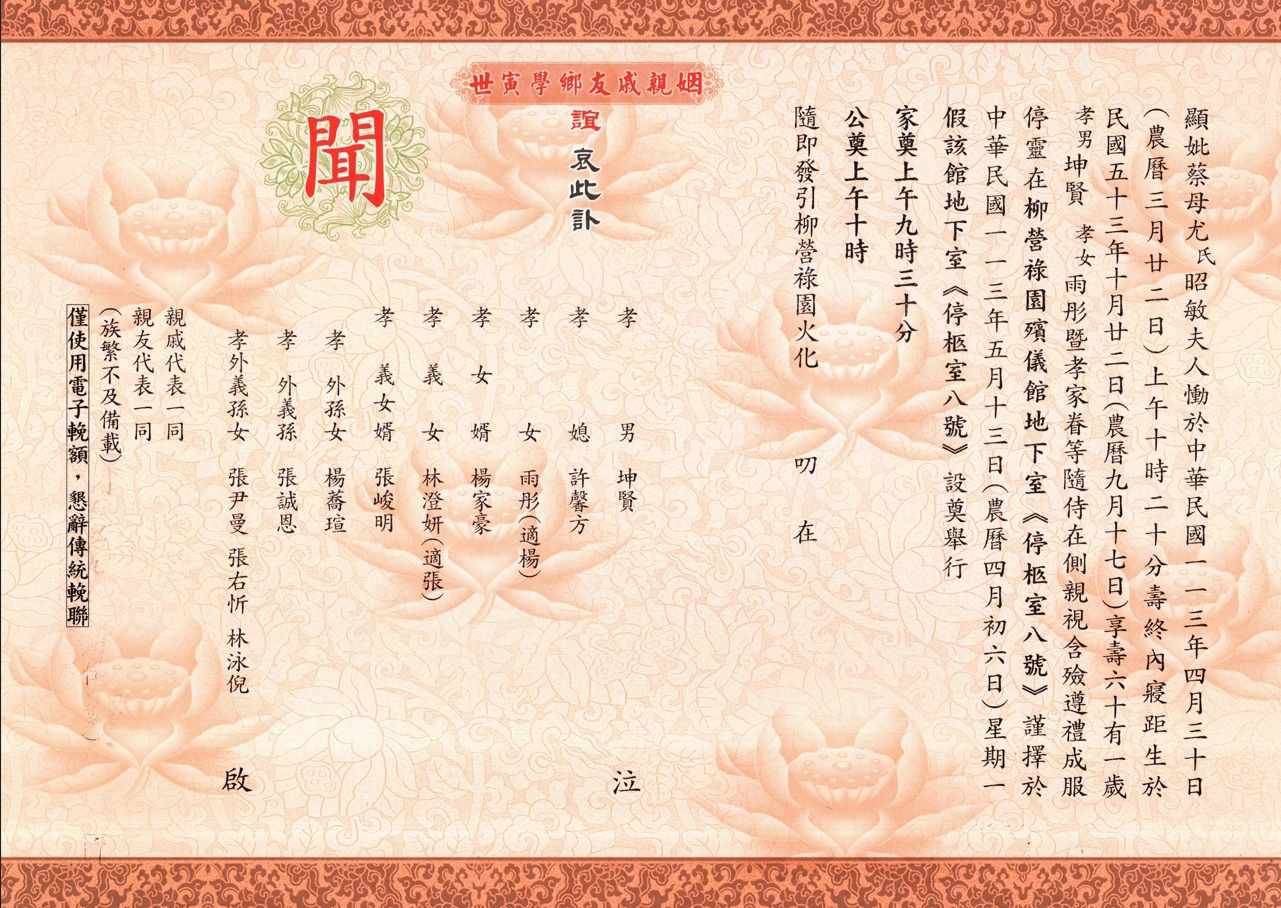 顯妣蔡母尤氏昭敏夫人慟於中華民國一一三年四月三十日
(農曆三月廿二日)上午十時二十分壽終內寢距生於
民國五十三年十月廿二日(農曆九月十七日)享壽六十有一歲
孝男坤賢 孝女雨彤暨孝家眷等隨侍在側親視含殮遵禮成服
停靈在柳營祿園殯儀館地下室《停柩室八號》謹擇於
中華民國一一三年五月十三日(農曆四月初六日)星期一
假該館地下室《停柩室八號》設奠舉行
家奠上午九時三十分
公奠上午十時
隨即發引柳營祿園火化 叨 在
姻親戚友鄉學寅世
誼 哀此訃
聞
孝 男 坤賢 泣
孝 媳 許馨方
孝 女 雨彤(適楊)
孝 女 婿 楊家豪
孝 義 女 林澄妍(適張)
孝 義女婿 張峻明
孝 外孫女 楊蕎瑄
孝 外義孫 張誠恩
孝外義孫女 張尹曼 張右忻 林泳倪 啟
親戚代表一同
親友代表一同
(族繁不及備載)
僅使用電子輓額，懇辭傳統輓聯